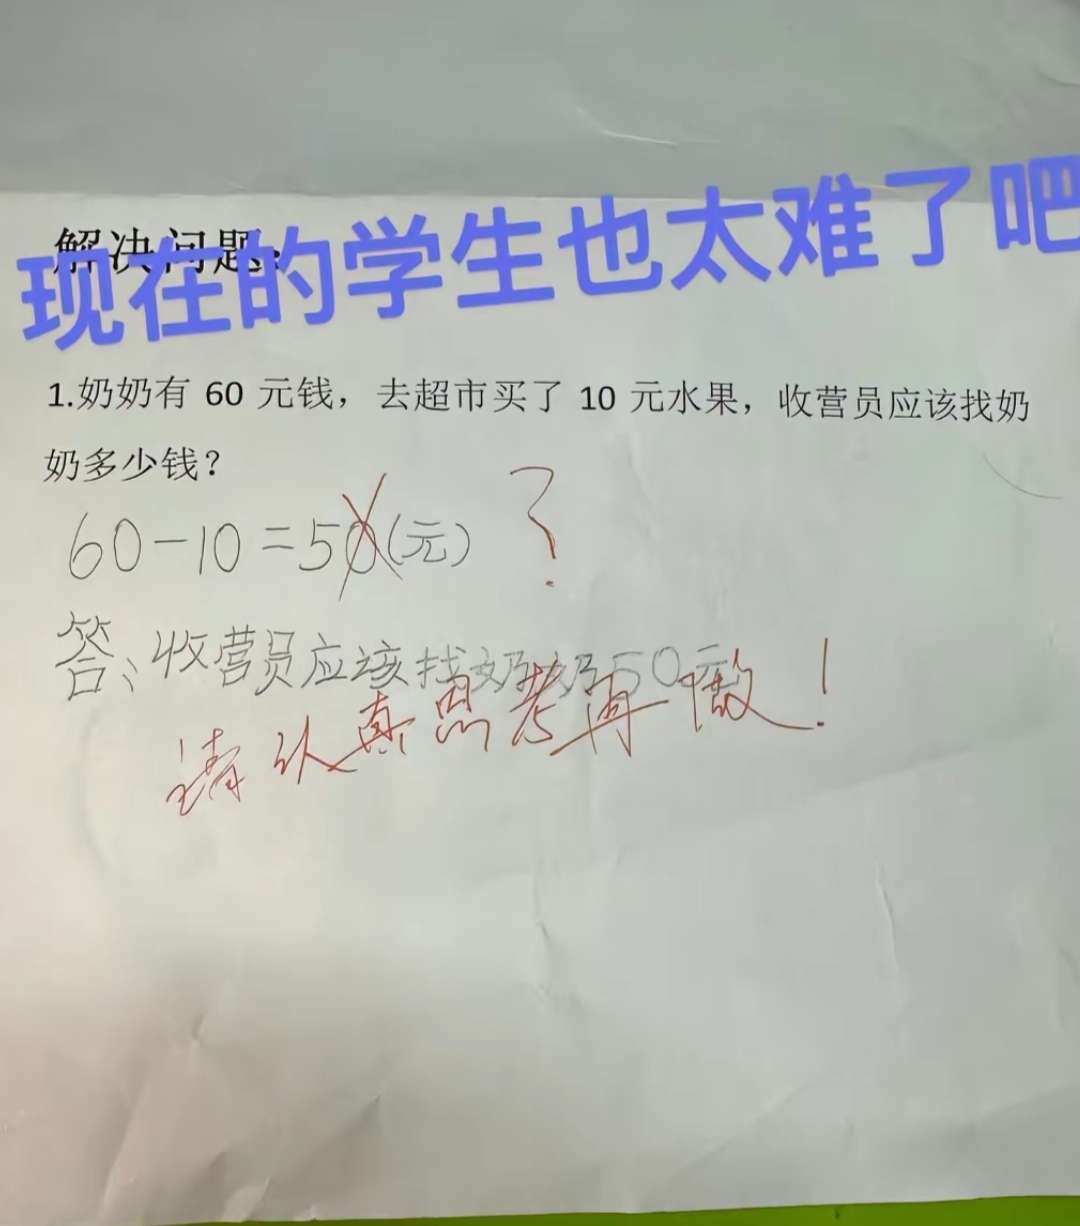 解决问题:
现在的学生也太难了吧
1.奶奶有 60 元钱，去超市买了 10 元水果，收营员应该找奶
奶多少钱？
60-10=50(元) ?
答、收营员应该找奶奶50元
请认真思考再做！